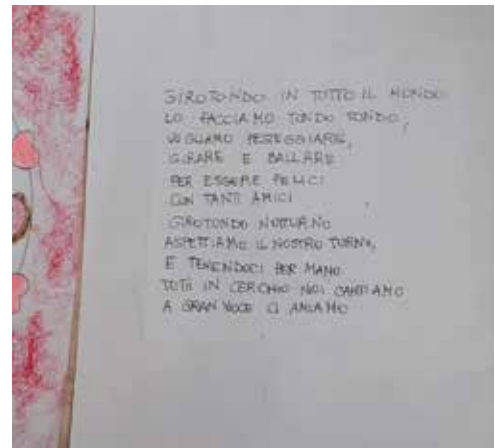 GIROTONDO IN TUTTO IL MONDO
LO FACCIAMO TONDO TONDO,
VOGLIAMO FESTEGGIARE,
GIRARE E BALLARE
PER ESSERE FELICI
CON TANTI AMICI
GIROTONDO NOTTURNO
ASPETTIAMO IL NOSTRO TURNO,
E TENENDOCI PER MANO
TUTTI IN CERCHIO NOI CANTIAMO
A GRAN VOCE CI AMIAMO